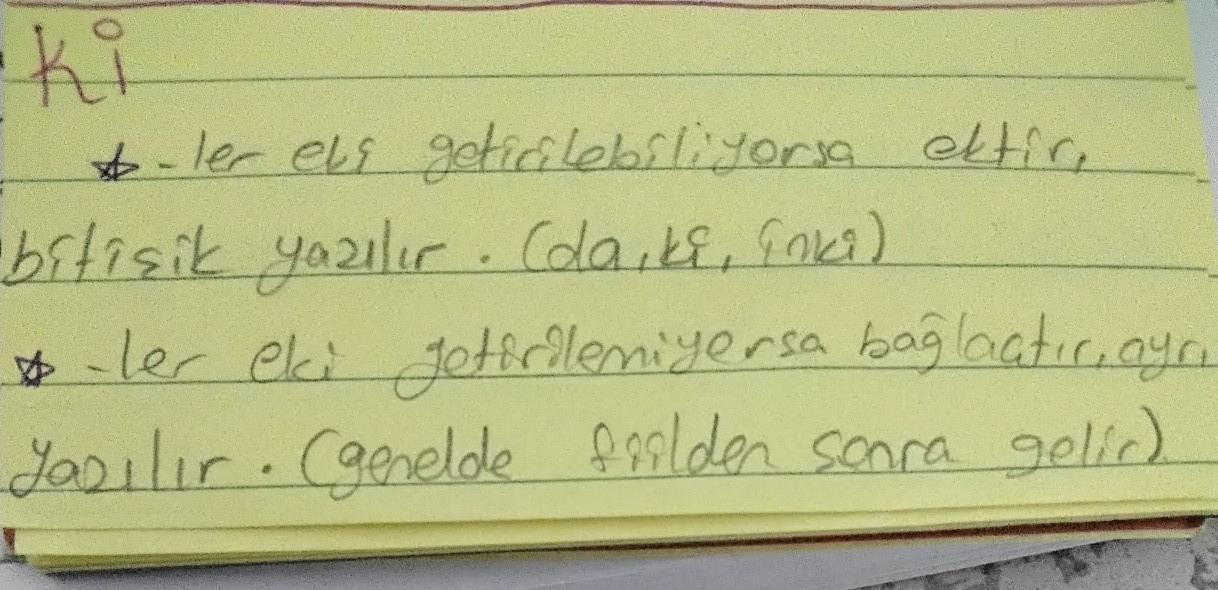 Ki
☆ -ler eki getirilebiliyorsa ektir,
bitişik yazılır. (da, ki, inki)
☆ -ler eki getirilemiyersa bağlaçtır, ayrı
yazılır. (genelde fiilden sonra gelir)